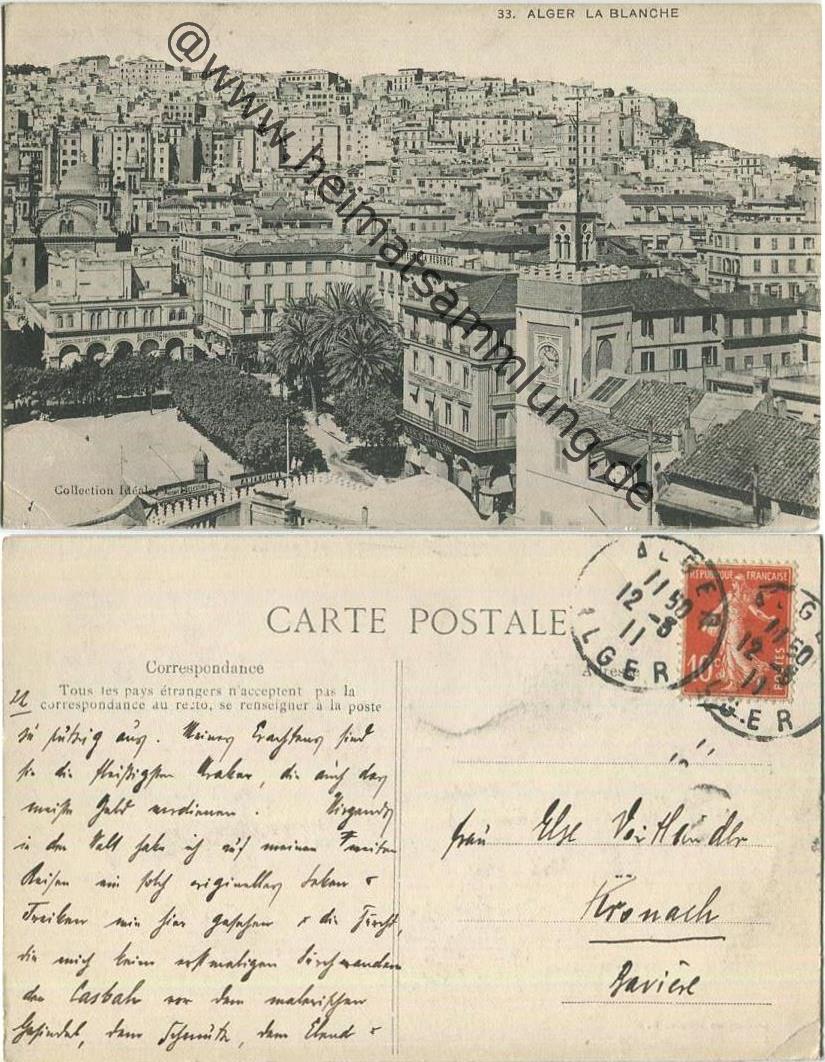 33. ALGER LA BLANCHE
@www.heimatsammlung.de
LA REGENCE
AMERICAIN
Collection Idéale
CARTE POSTALE
ALGER
11 50
12-8
11
ALGER
REPUBLIQUE FRANÇAISE
10c
POSTES
ALGER
11 50
12-8
11
ALGER
Correspondance
Tous les pays étrangers n'acceptent pas la
correspondance au recto, se renseigner à la poste
Adresse
aus. Meines Erachtens sind
sie die fleißigsten Araber, die auch das
meiste Geld verdienen. Nirgends
in der Welt habe ich auf meinen weiten
Reisen ein solch originelles Leben &
Treiben wie hier gesehen & die Furcht,
die mich beim erstmaligen Durchwandern
der Casbah vor dem malerischen
Gesindel, dem Schmutz, dem Elend &
Frau Else
Kronach
Bavière